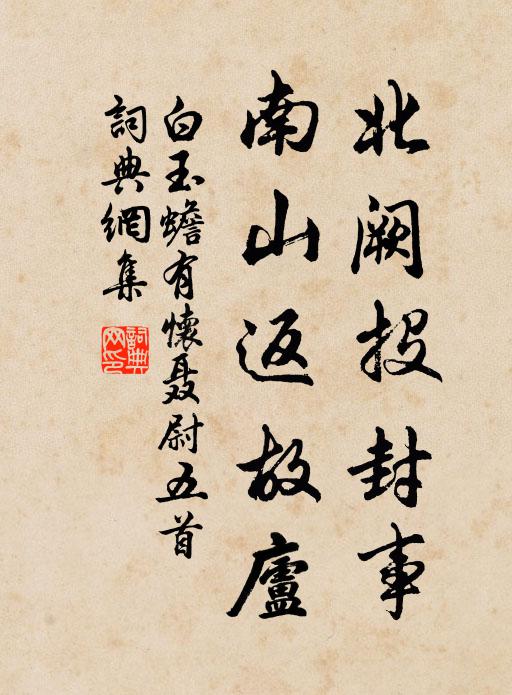 北阙投封事
南山返故廬
白玉蟾有懷聂尉五首
詞典網集
詞典网印